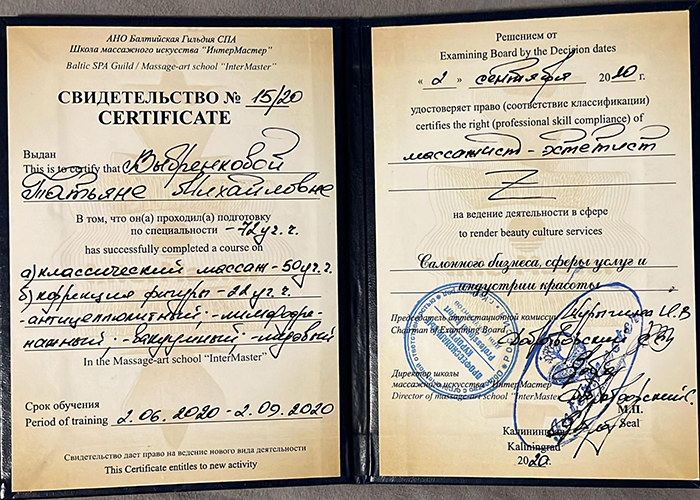 АНО Балтийская Гильдия СПА
Школа массажного искусства "ИнтерМастер"
Baltic SPA Guild / Massage-art school "InterMaster"
СВИДЕТЕЛЬСТВО № 15/20
CERTIFICATE
Выдан
This is to certify that Выбренковой
Татьяне Михайловне
В том, что он(а) проходил(а) подготовку
по специальности - 72 уч. ч.
has successfully completed a course on
а) классический массаж - 50 уч. ч.
б) коррекция фигуры - 22 уч. ч.
- антицеллюлитный - лимфодре-
нажный - вакуумный - медовый
In the Massage-art school "InterMaster"
Срок обучения
Period of training 2.06.2020 - 2.09.2020
Свидетельство дает право на ведение нового вида деятельности
This Certificate entitles to new activity
Решением от
Examining Board by the Decision dates
« 2 » сентября 2020 г.
удостоверяет право (соответствие классификации)
certifies the right (professional skill compliance) of
массажист - эстетист
Z
на ведение деятельности в сфере
to render beauty culture services
Салонного бизнеса, сферы услуг и
индустрии красоты
Председатель аттестационной комиссии
Chairman of Examining Board
Директор школы
массажного искусства "ИнтерМастер"
Director of massage-art school "InterMaster"
М.П.
Seal
Калининград
Kaliningrad
2020г.